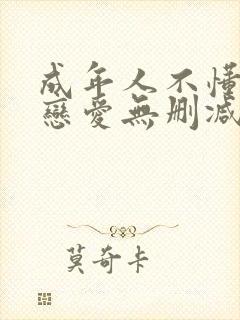 成年人不懂
戀愛無删減
莫奇卡